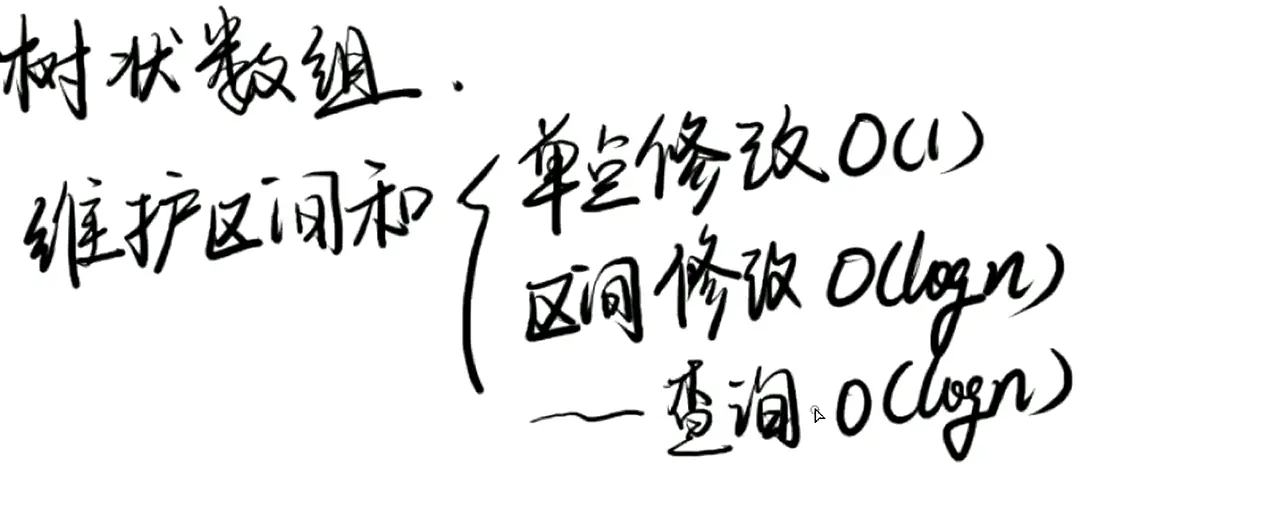 树状数组.
维护区间和
单点修改 O(1)
区间修改 O(logn)
—查询 O(logn)